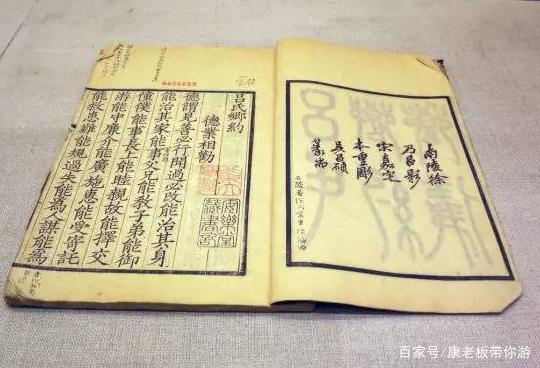 南陵徐
乃昌影
宋嘉定
本重彫
吳昌碩
篆耑
呂氏鄉約
德業相勸
德謂見善必行聞過必改能治其身
能治其家能事父兄能教子弟能御
僮僕能事長上能睦親故能擇交
游能守廉介能廣施惠能受寄託
能救患難能規過失能為人謀能為
百家号/康老板带你游